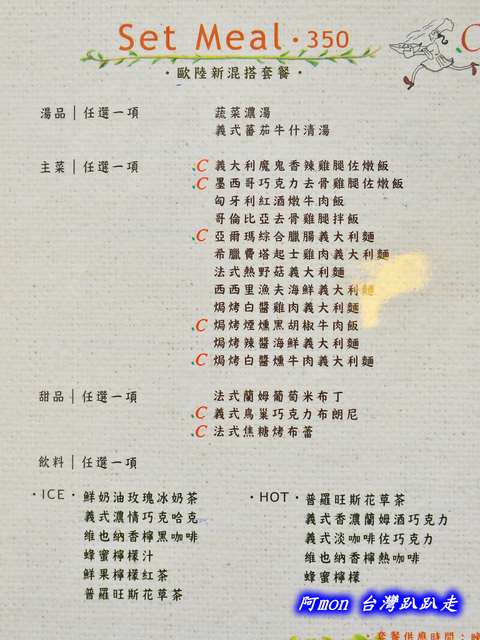 Set Meal · 350
· 歐陸新混搭套餐 ·
湯品│任選一項
蔬菜濃湯
義式蕃茄牛什清湯
主菜│任選一項
C 義大利魔鬼香辣雞腿佐燉飯
C 墨西哥巧克力去骨雞腿佐燉飯
匈牙利紅酒燉牛肉飯
哥倫比亞去骨雞腿拌飯
C 亞爾瑪綜合臘腸義大利麵
希臘費塔起士雞肉義大利麵
法式熱野菇義大利麵
西西里漁夫海鮮義大利麵
焗烤白醬雞肉義大利麵
C 焗烤煙燻黑胡椒牛肉飯
焗烤辣醬海鮮義大利麵
C 焗烤白醬燻牛肉義大利麵
甜品│任選一項
法式蘭姆葡萄米布丁
C 義式鳥巢巧克力布朗尼
C 法式焦糖烤布蕾
飲料│任選一項
· ICE ·
鮮奶油玫瑰冰奶茶
義式濃情巧克哈克
維也納香檸黑咖啡
蜂蜜檸檬汁
鮮果檸檬紅茶
普羅旺斯花草茶
· HOT ·
普羅旺斯花草茶
義式香濃蘭姆酒巧克力
義式淡咖啡佐巧克力
維也納香檸熱咖啡
蜂蜜檸檬
阿mon 台灣趴趴走
· 套餐供應時間：